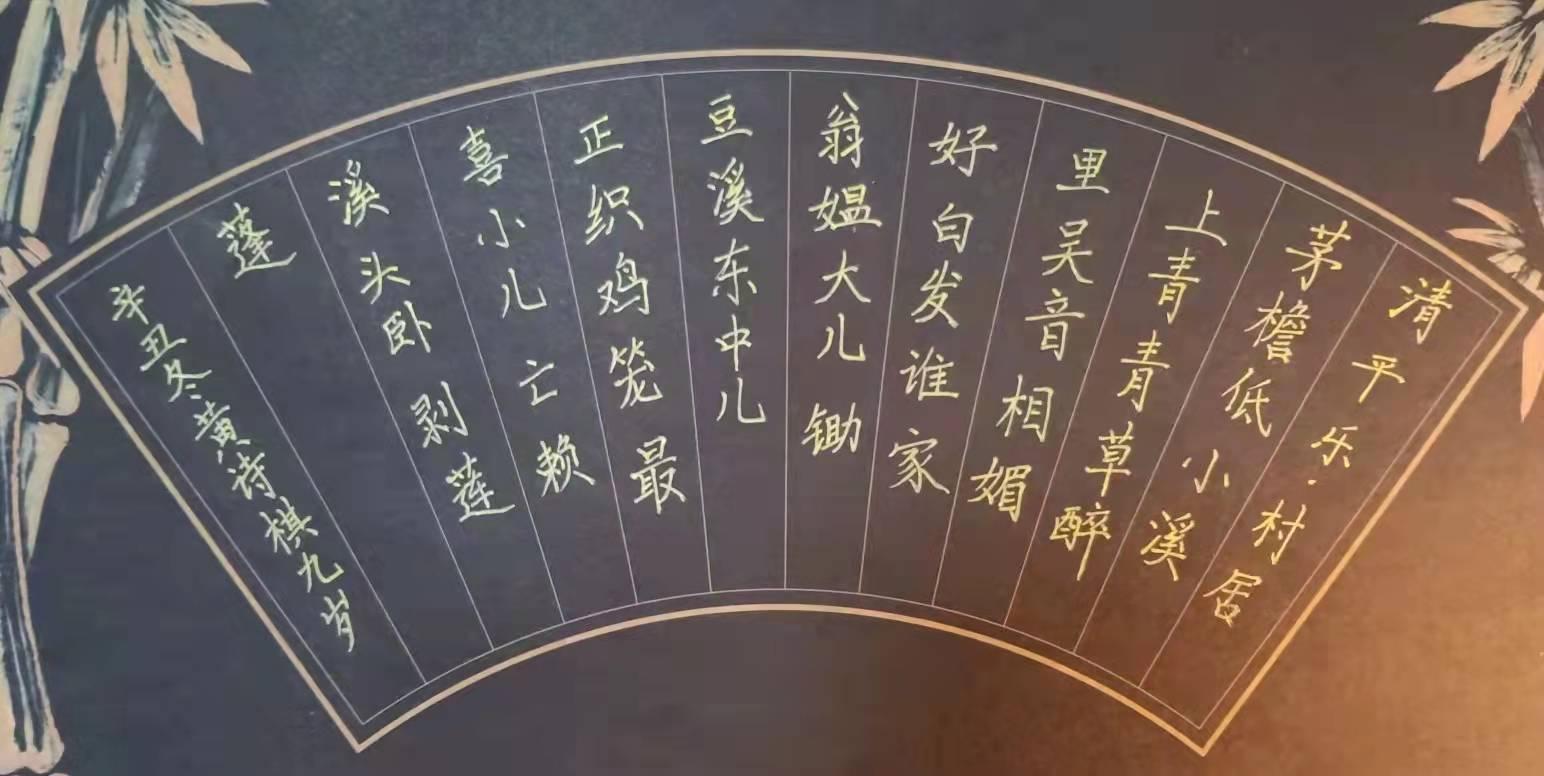 清平乐·村居
茅檐低小溪
上青青草醉
里吴音相媚
好白发谁家
翁媪大儿锄
豆溪东中儿
正织鸡笼最
喜小儿亡赖
溪头卧剥莲
蓬
辛丑冬黄诗棋九岁